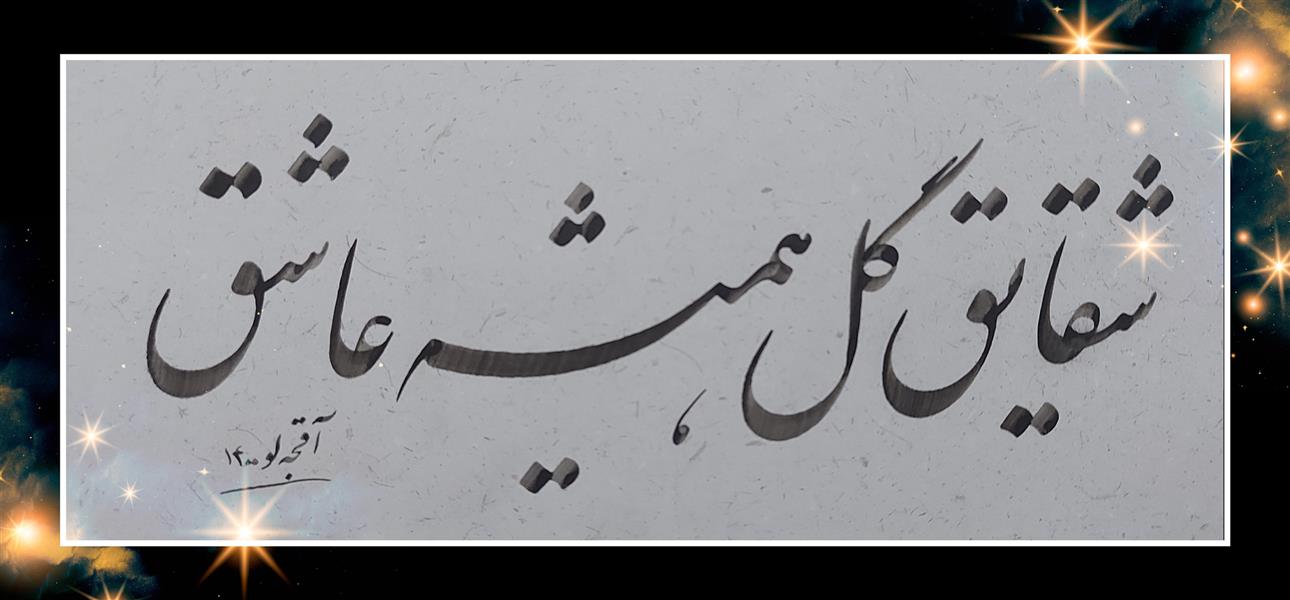 شقایق گل همیشه عاشق
آقجه لو ۱۴۰۰